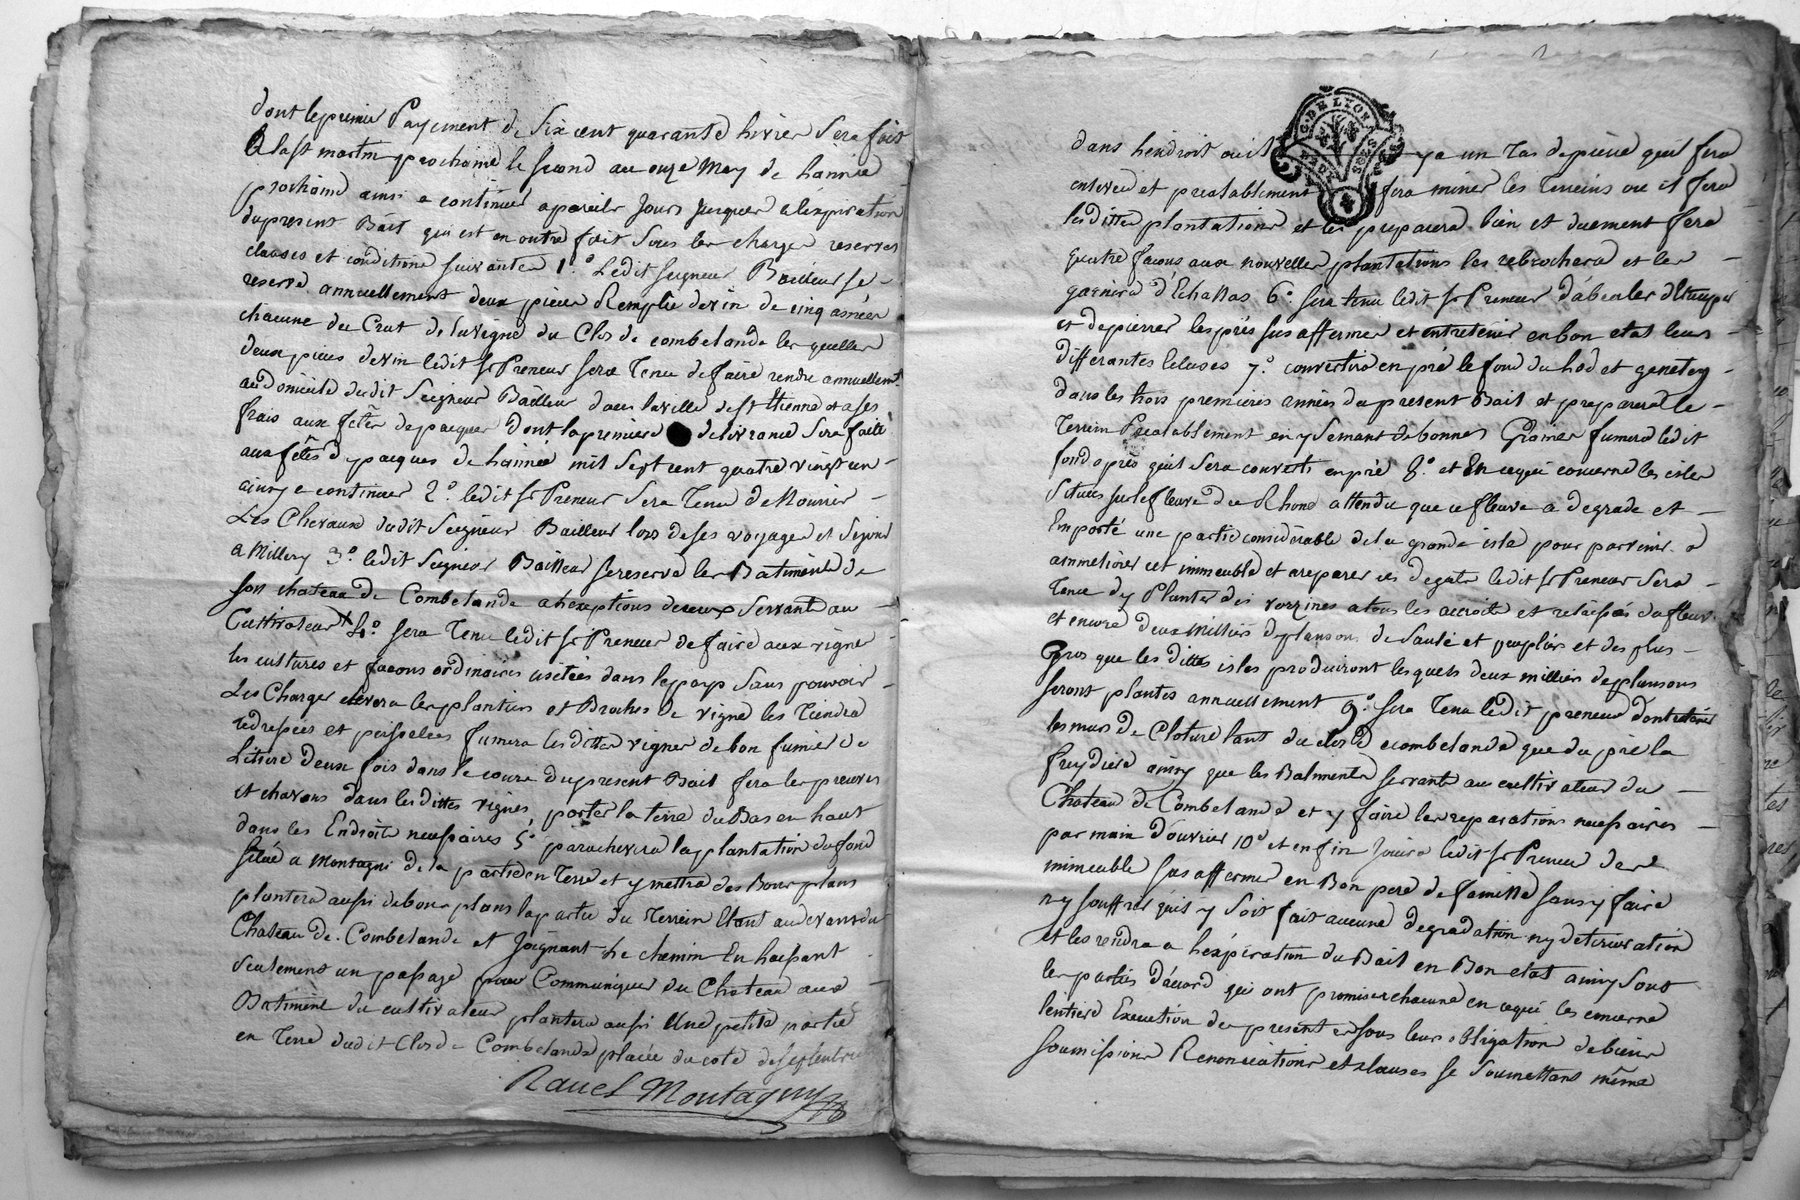 dont le premier Payement de Six cent quarante livres Sera fait
a la st martin prochaine le second au onze May de lannée
prochaine ainsi a continuer a pareils Jours Jusques a lexpiration
du present Bail qui est en outre fait sous les charges reserves
clauses et conditions suivantes 1.° Ledit seigneur Bailleur se
reserve annuellement deux pieces Remplie de vin de cinq asnées
chacune du Crut de la vigne du Clos de combelande les quelles
deux pieces de vin ledit sr Preneur sera Tenu de faire rendre annuellemt
au domicile dudit Seigneur Bailleur dans la ville de st Etienne et a ses
frais aux fêtes de paques dont la premiere delivrance sera faite
aux fêtes de paques de lannée mil sept cent quatre vingt un
ainsy a continuer 2.° ledit sr Preneur Sera Tenu de Nourrir
Les Chevaux dudit Seigneur Bailleur lors de ses voyages et sejours
a Millery 3.° ledit Seigneur Bailleur se reserve les Batiments de
son chateau de Combelande a lexeptions de ceux Servants au
Cultivateur 4.° sera Tenu ledit sr Preneur de faire aux vignes
les cultures et facons ordinaires usitées dans le pays sans pouvoir
Les Charger elevera les plantiers et Broches de vigne les Tiendra
redressées et paisselées fumera les dittes vignes de bon fumier de
Litiere deux fois dans le cours du present Bail fera les preuves
et chavons dans les dittes vignes, porter la terre du Bas en haut
dans les Endroits necessaires 5.° parachevera la plantation du fond
situé a Montagni de la partie en Terre et y mettra des Bons plans
plantera aussi de bons plans la partie du Terrein Etant au devant du
Chateau de Combelande et Joignant le chemin En laissant
seulement un passage pour Communiquer du Chateau aux
Batiment du cultivateur plantera aussi Une petite partie
en Terre dudit Clos de Combelande placée du coté de septentrion
Ravel Montagny
G. DE LYON
dans lendroit ou il y a un Tas de pierre quil fera
enlever et prealablement fera miner les Terreins ou il fera
les dittes plantations et les preparera bien et duement fera
quatre facons aux nouvelles plantations les rebrochera et les
garnira d'Echallas 6.° sera tenu ledit sr Preneur d'abealer d'Etauper
et depierrer les prés sus affermés et entretenir en bon etat leurs
differantes Ecluses 7.° convertira en pré le fond du hod et genetey
dans les trois premieres années du present Bail et preparera le
Terrein Prealablement en y Semant de bonnes Graines fumera ledit
fond après quil sera converti en pré 8.° et En ce qui concerne les isles
Situées sur le fleuve du Rhone attendu que ce fleuve a degradé et
Emporté une partie considérable de la grande isle pour parvenir a
ammeliorer cet immeuble et a reparer ces degats ledit sr Preneur sera
Tenu dy Planter des vorzines a tous les accroits et relaissés du fleuve
et encore deux Milliers de plansons de Saule et peupliers et des plus
Gros que les dittes isles produiront lesquels deux milliers de plansons
seront plantés annuellement 9.° sera Tenu ledit preneur dentretenir
les murs de Cloture tant du clos de combelande que du pré la
freydiere ainsy que les Batiments servants au cultivateur du
Chateau de Combelande et y faire les reparations necessaires
par main d'ouvrier 10.° et enfin Jouira ledit sr Preneur des
immeuble sus affermé en Bon pere de famille sans y faire
ny souffrir quil y soit fait aucune degradation ny deterioration
et les rendra a lexpiration du Bail en Bon etat ainsy sont
les parties d'accord qui ont promis chacune en ce qui les concerne
lentiere Execution des presentes sous leurs obligation de biens
soumissions Renonciations et clauses se soumettans même